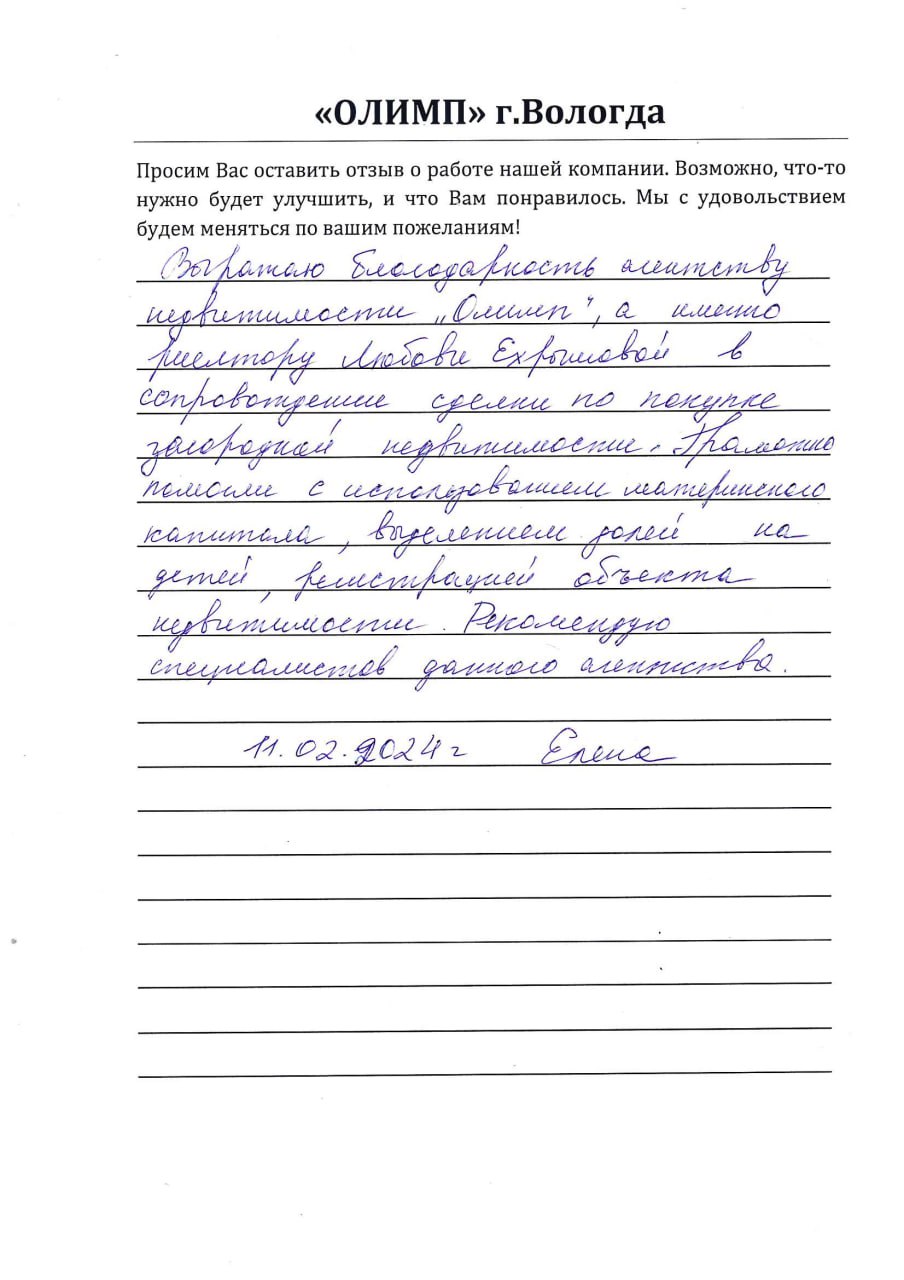 «ОЛИМП» г.Вологда
Просим Вас оставить отзыв о работе нашей компании. Возможно, что-то
нужно будет улучшить, и что Вам понравилось. Мы с удовольствием
будем меняться по вашим пожеланиям!
Выражаю благодарность агентству
недвижимости „Олимп", а именно
риелтору Любови Ехрыловой в
сопровождении сделки по покупке
загородной недвижимости. Грамотно
помогли с использованием материнского
капитала, выделением долей на
детей, регистрацией объекта
недвижимости. Рекомендую
специалистов данного агентства.
11.02.2024 г Елена